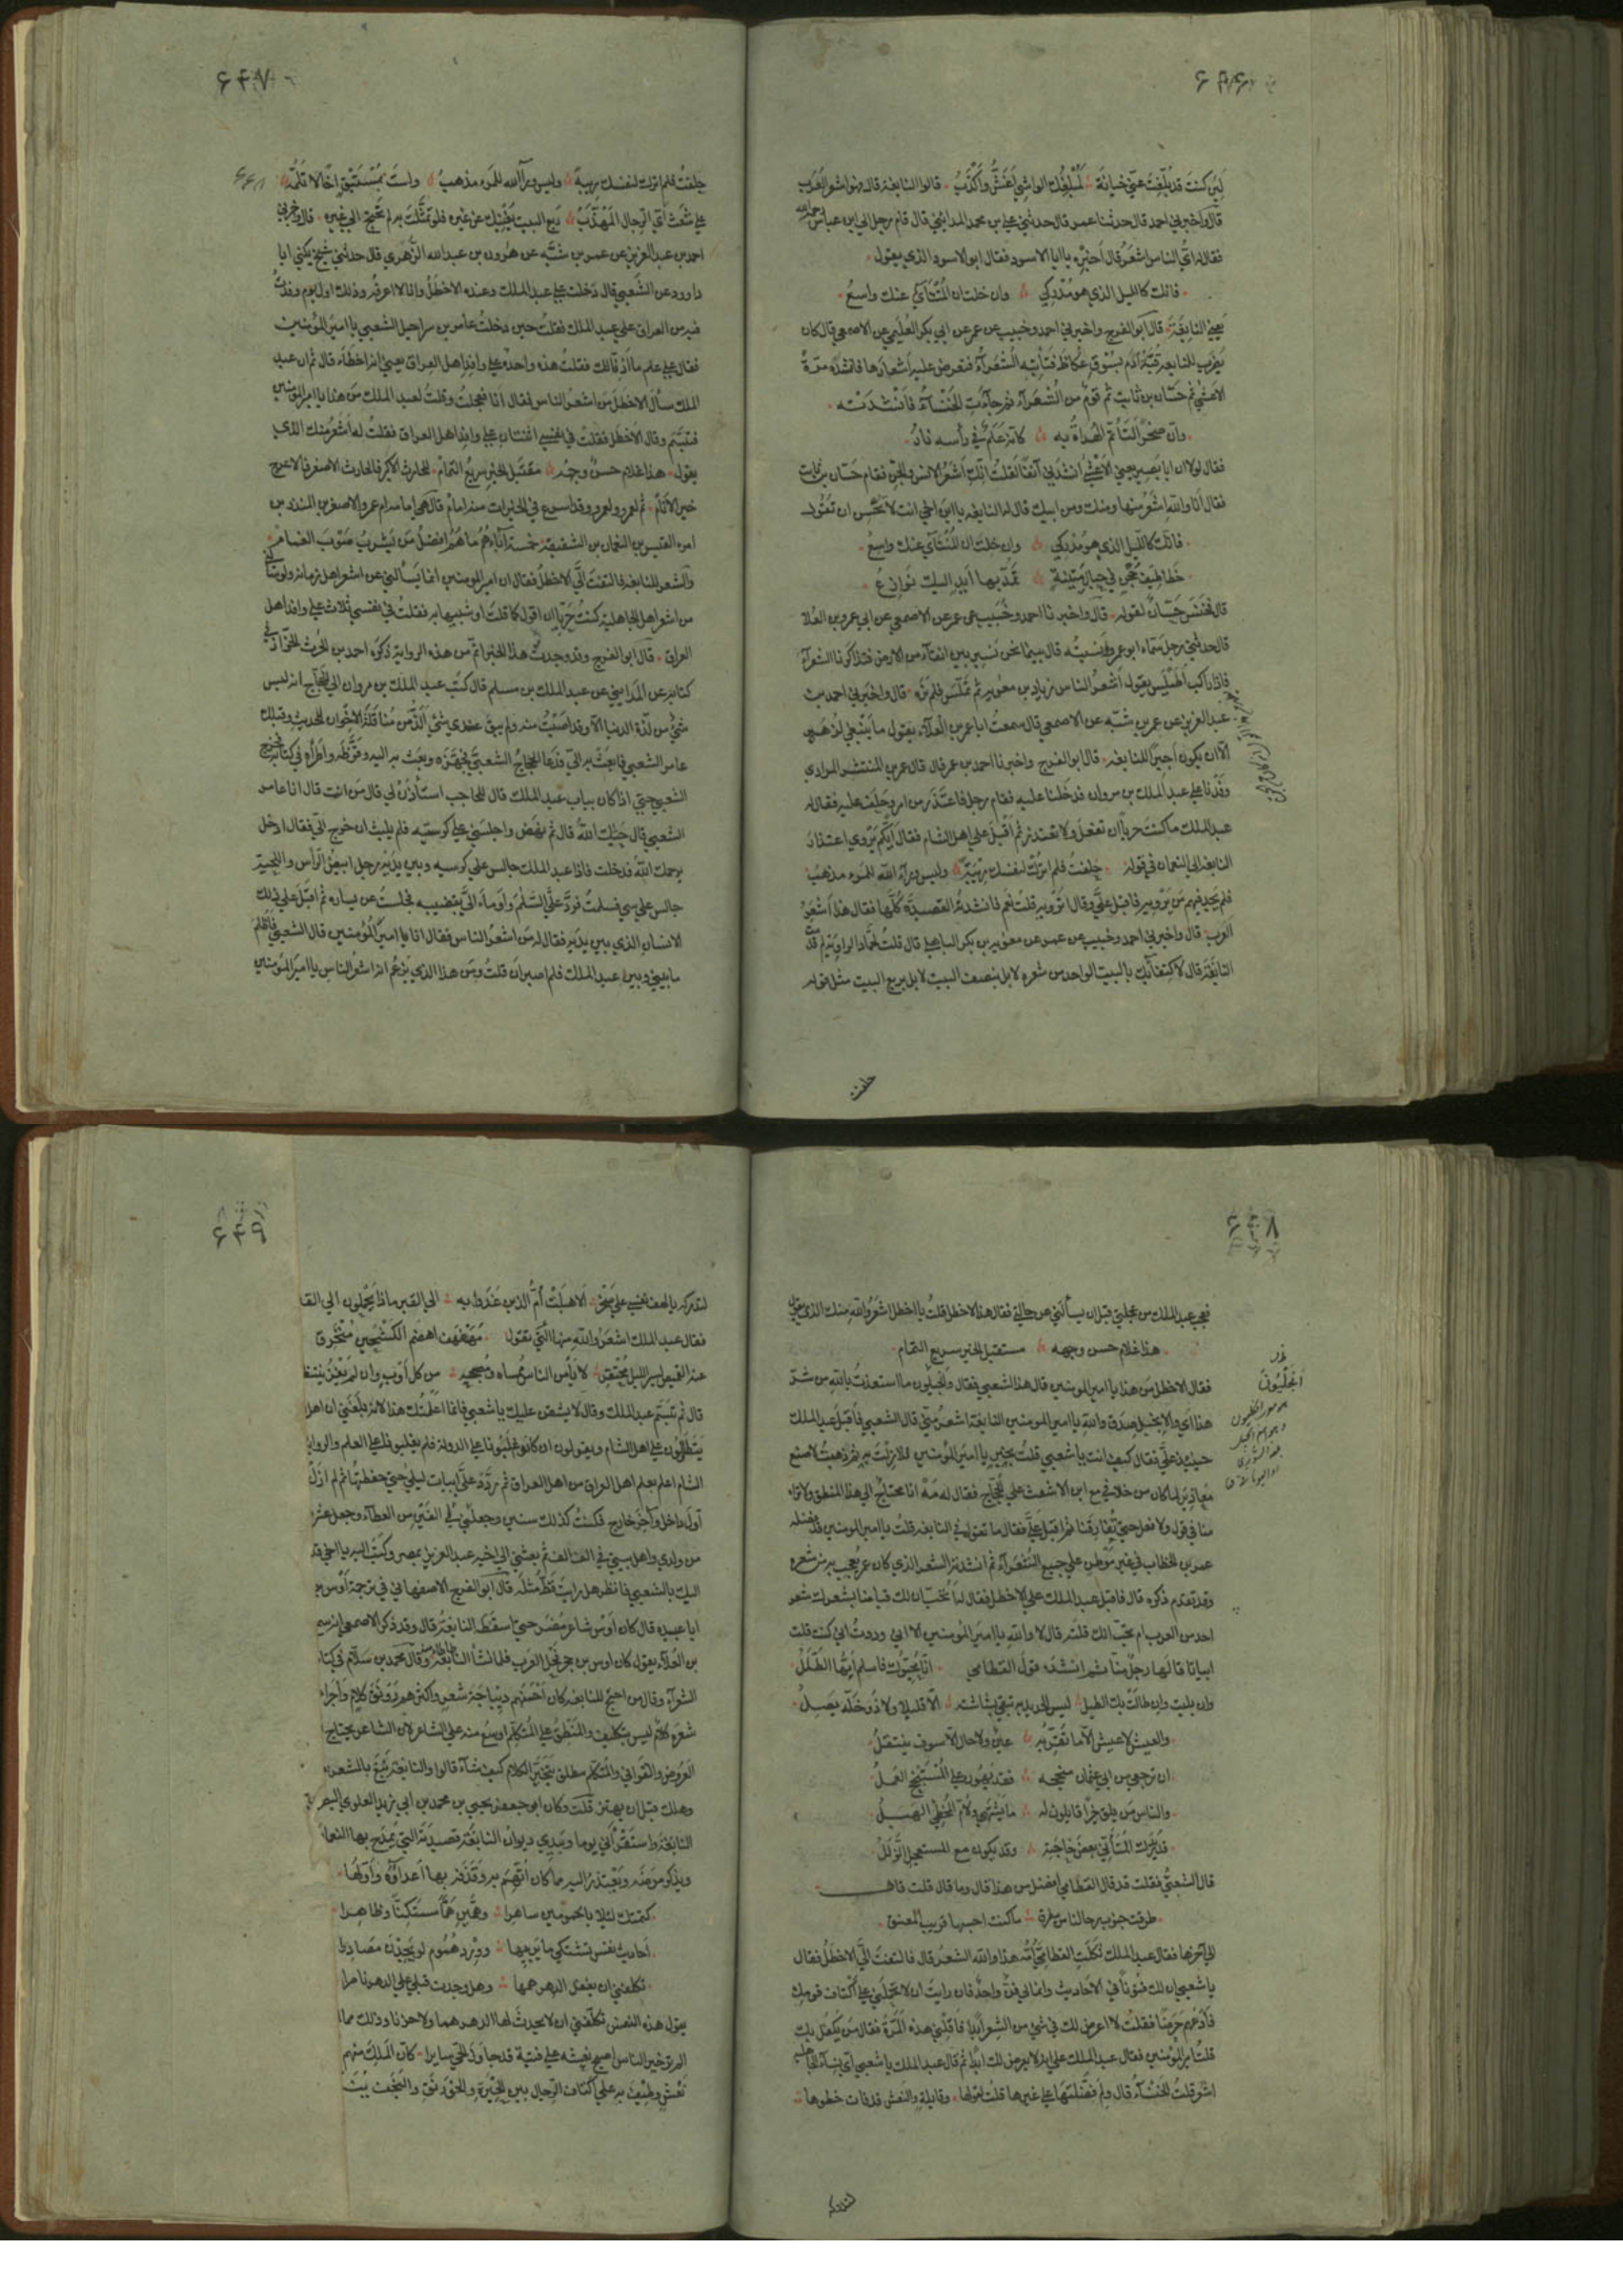 ۶۴۶
لئن كنت قد بلغت عني خيانة لمبلغك الواشي اغش واكذب قالوا النابغة قال هو اشعر العرب
قال واخبرني احمد قال حدثنا عمر قال حدثني علي بن محمد المدايني قال قام رجل الى ابن عباس
فقال له اي الناس اشعر قال اخبره يا ابا الاسود فقال ابو الاسود الذي يقول
فانك كالليل الذي هو مدركي وان خلت ان المنتأى عنك واسع
يعني النابغة قال ابو الفرج واخبرني احمد وحبيب عن عمر عن ابي بكر العليمي عن الاصمعي قال كان
يضرب للنابغة قبة ادم بسوق عكاظ فتأتيه الشعرآء فتعرض عليه اشعارها فانشده مرة
الاعشى ثم حسان بن ثابت ثم قوم من الشعرآء ثم جآءت الخنسآء فانشدته
وان صخرا لتأتم الهداة به كانه علم في رأسه نار
فقال لولا ان ابا بصير يعني الاعشى انشدني آنفا لقلت انك اشعر الانس والجن فقام حسان بن ثابت
فقال انا والله اشعر منها ومنك ومن ابيك قال له النابغة يا ابن اخي انت لا تحسن ان تقول
فانك كالليل الذي هو مدركي وان خلت ان المنتآى عنك واسع
خطاطيف حجن في حبال متينة تمد بها ايد اليك نوازع
قال فخنس حسان لقوله قال واخبرنا احمد وحبيب عن عمر عن الاصمعي عن ابي عمرو بن العلا
قال حدثني رجل سماه ابو عمرو وانسيته قال بينما نحن نسير بين انقآء من الارض فتذاكرنا الشعرآء
فاذا راكب اطيلس يقول اشعر الناس زياد بن معوية ثم تملس فلم نره قال واخبرني احمد بن
عبد العزيز عن عمر بن شبه عن الاصمعي قال سمعت ابا عمرو بن العلآء يقول ما ينبغي لزهير
الا ان يكون اجيرا للنابغة قال ابو الفرج واخبرنا احمد بن عمر قال قال عمر بن المنتشر المرادي
وفدنا على عبد الملك بن مروان فدخلنا عليه فقام رجل فاعتذر من امر وحلف عليه فقال له
عبد الملك ما كنت حريا ان تفعل ولا تعتذر ثم اقبل على اهل الشام فقال ايكم يروي اعتذار
النابغة الى النعمان في قوله حلفت فلم اترك لنفسك ريبة وليس ورآء الله للمرء مذهب
فلم يجد فيهم من يرويه فاقبل علي وقال اترويه قلت نعم فانشدته القصيدة كلها فقال هذا اشعر
العرب قال واخبرني احمد وحبيب عن عمر عن معوية بن بكر الباهلي قال قلت لحماد الراوية لم قدمت
النابغة قال لاكتفائك بالبيت الواحد من شعره لا بل بنصف البيت لا بل بربع البيت مثل قوله
حلفت
۶۴۷
حلفت فلم اترك لنفسك ريبة وليس ورآالله للمرء مذهب ولست بمستبق اخا لا تلمه
على شعث اي الرجال المهذب ربع البيت يغنيك عن غيره فلو تمثلت به لم تحتج الى غيره قال واخبرني
احمد بن عبد العزيز عن عمر بن شبه عن هرون بن عبد الله الزهري قال حدثني شيخ يكنى ابا
داوود عن الشعبي قال دخلت على عبد الملك وعنده الاخطل وانا لا اعرفه وذلك اول يوم وفدت
فيه من العراق على عبد الملك فقلت حين دخلت عامر بن شراحيل الشعبي يا امير المؤمنين
فقال على علم ما اذنا لك فقلت هذه واحدة على وافد اهل العراق يعني انه اخطاء قال ثم ان عبد
الملك سأل الاخطل من اشعر الناس فقال انا فعجلت وقلت لعبد الملك من هذا يا امير المؤمنين
فتبسم وقال الاخطل فقلت في نفسي اثنتان على وافد اهل العراق فقلت له اشعر منك الذي
يقول هذا غلام حسن وجهه مستقبل الخير سريع التمام للحارث الاكبر والحارث الاصغر فالاعرج
خير الانام ثم لعمرو ولعمرو وقد اسرع في الخيرات منه امام قال هي امامة ام عمرو الاصغر بن المنذر بن
امرء القيس بن النعمان بن الشقيقة خمسة آباءهم ما هم افضل من يشرب صوب الغمام
والشعر للنابغة فالتفت الي الاخطل فقال ان امير المومنين انما يسألني عن اشعر اهل زمانه ولو سألني
عن اشعر اهل الجاهلية كنت حريا ان اقول كما قلت او شبيها به فقلت في نفسي ثلاث على وافد اهل
العراق قال ابو الفرج وقد وجدت هذا الخبر اتم من هذه الرواية ذكره احمد بن الحرث الخراز في
كتابه عن المدايني عن عبد الملك بن مسلم قال كتب عبد الملك بن مروان الى الحجاج انه ليس
شيء من لذة الدنيا الا وقد اصبت منه ولم يبق عندي شئ الذ من مناقلة الاخوان الحديث وقبلك
عامر الشعبي فابعث به الي فدعا الحجاج الشعبي فجهزه وبعث به اليه وقرظه واطرأه في كتابه فخرج
الشعبي حتى اذا كان بباب عبد الملك قال للحاجب استأذن لي قال من انت قال انا عامر
الشعبي قال حياك الله قال ثم نهض واجلسني على كرسيه فلم يلبث ان خرج الي فقال ادخل
يرحمك الله فدخلت فاذا عبد الملك جالس على كرسيه وبين يديه رجل ابيض الرأس واللحية
جالس على كرسي فسلمت فرد علي السلم واومأ الي بقضيبه فجلست عن يساره ثم اقبل على ذلك
الانسان الذي بين يديه فقال له من اشعر الناس فقال انا يا امير المؤمنين قال الشعبي فاظلم
ما بيني وبين عبد الملك فلم اصبر ان قلت ومن هذا الذي يزعم انه اشعر الناس يا امير المؤمنين
۶۴۸
فعجب عبد الملك من عجلتي قبل ان يسألني عن حالي فقال هذا الاخطل قلت يا اخطل اشعر والله منك الذي يقول
هذا غلام حسن وجهه مستقبل الخير سريع التمام
فقال الاخطل من هذا يا امير المومنين قال هذا الشعبي فقال والجيلون ما استعذت بالله من شر
هذا اي والانجيل صدق والله يا امير المومنين النابغة اشعر مني قال الشعبي فاقبل عبد الملك
حينئذ علي فقال كيف انت يا شعبي قلت بخير يا امير المؤمنين فلا زلت به ثم ذهبت لاصنع
معاذير لما كان من خلافي مع ابن الاشعث على الحجاج فقال له مه انا لا نحتاج الى هذا المنطق ولا تراه
منا في قول ولا فعل حتى تفارقنا ثم اقبل علي فقال ما تقول في النابغة قلت يا امير المومنين قد فضله
عمر بن الخطاب في غير موطن على جميع الشعرآء ثم انشدته الشعر الذي كان عمر يعجب به من شعره
وقد تقدم ذكره قال فاقبل عبد الملك على الاخطل فقال له اتحب ان لك قياضا بشعرك شعر
احد من العرب ام تحب انك قلته قال لا والله يا امير المؤمنين الا اني وددت اني كنت قلت
ابياتا قالها رجل منا ثم انشده قول القطامي انا محيوك فاسلم ايها الطلل
وان بليت وان طالت بك الطيل ليس الجديد به تبقى بشاشته الا قليلا ولا ذو خلة يصل
والعيش لا عيش الا ما تقر به عين ولا حال الا سوف ينتقل
ان ترجعي من ابي عثمان منجحة فقد يهون على المستنجح العمل
والناس من يلق خيرا قايلون له ما يشتهي ولام المخطئ الهبل
قد يدرك المتأني بعض حاجته وقد يكون مع المستعجل الزلل
قال الشعبي فقلت قد قال القطامي افضل من هذا قال وما قال قلت قال
طرقت جنوب رحالنا من مطرق ما كنت احسبها قريب المعنق
الى آخرها فقال عبد الملك ثكلت القطامي امه هذا والله الشعر قال فالتفت الي الاخطل فقال
يا شعبي ان لك فنونا في الاحاديث وانما لي فن واحد فان رايت ان لا تحملني على اكتاف قومك
فادعهم حرضا فقلت لا اعرض لك في شئ من الشعر ابدا فاقلني هذه المرة فقال من يكفل بك
قلت امير المؤمنين فقال عبد الملك علي انه لا يعرض لك ابدا ثم قال عبد الملك يا شعبي اي نسآء الجاهلية
اشعر قلت الخنسآء قال ولم فضلتها على غيرها قلت لقولها وقايلة والنعش قد فات خطوها
لتدركه
۶۴۹
لتدركه يا لهف نفسي على صخر الا هبلت ام الذين غدوا به الى القبر ماذا يحملون الى القبر
فقال عبد الملك اشعر والله منها التي تقول مهفهف اهضم الكشحين منخرق
عنه القميص لسير الليل محتقر لا يأمن الناس ممساه ومصبحه من كل اوب وان لم يغز ينتظر
قال ثم تبسم عبد الملك وقال لا يشق عليك يا شعبي فانما اعلمتك هذا لانه بلغني ان اهل
يتطاولون على اهل الشام ويقولون ان كانوا غلبونا على الدولة فلم يغلبونا على العلم والرواية
الشام اعلم بعلم اهل العراق من اهل العراق ثم ردد علي ابيات ليلى حتى حفظتها ثم لم ازل
اول داخل وآخر خارج فكنت كذلك سنين وجعلني في الفين من العطآء وجعل عشر
من ولدي واهل بيتي في الف الف ثم بعثني الى اخيه عبد العزيز بمصر وكتب اليه يا اخي قد
اليك بالشعبي فانظر هل رايت قط مثله قال ابو الفرج الاصفهاني في ترجمة اوس
ابا عبيدة قال كان اوس شاعر مضر حتى اسقطه النابغة قال وقد ذكر الاصمعي انه سمع
بن العلآء يقول كان اوس بن حجر فحل العرب فلما نشأ النابغة طأطأ منه وقال محمد بن سلام في كتاب
الشعرآء وقال من احتج للنابغة كان احسنهم ديباجة شعر واكثرهم رونق كلام واجزلهم
شعره كلام ليس بتكلف والمنطق على المتكلم اوسع منه على الشاعر لان الشاعر يحتاج
العروض والقوافي والمتكلم مطلق يتخير الكلام كيف شآء قالوا والنابغة نبغ بالشعر
وهلك قبل ان يهتر قلت وكان ابو جعفر يحيى بن محمد بن ابي زيد العلوي البصري
النابغة واستقرأني يوما وبيدي ديوان النابغة قصيدته التي يمدح بها النعمان
ويذكر مرضه ويعتذر اليه مما كان اتهم به وقذفه بها اعداؤه واولها
كتمتك ليلا بالجمومين ساهرا وهمين هما مستكنا وظاهرا
احاديث نفس تشتكي ما يريبها وورد هموم لو يجدن مصادرا
تكلفني ان يغفل الدهر همها وهل وجدت قبلي على الدهر ناصرا
يقول هذه النفس تكلفني ان لا يحدث لها الدهر هما ولا حزنا وذلك مما لا
الم تر خير الناس اصبح نعشه على فتية قد جاوز الحي سايرا كان الملك منهم
نعش وطيف به على اكتاف الرجال بين الحيرة والخورنق والنجف